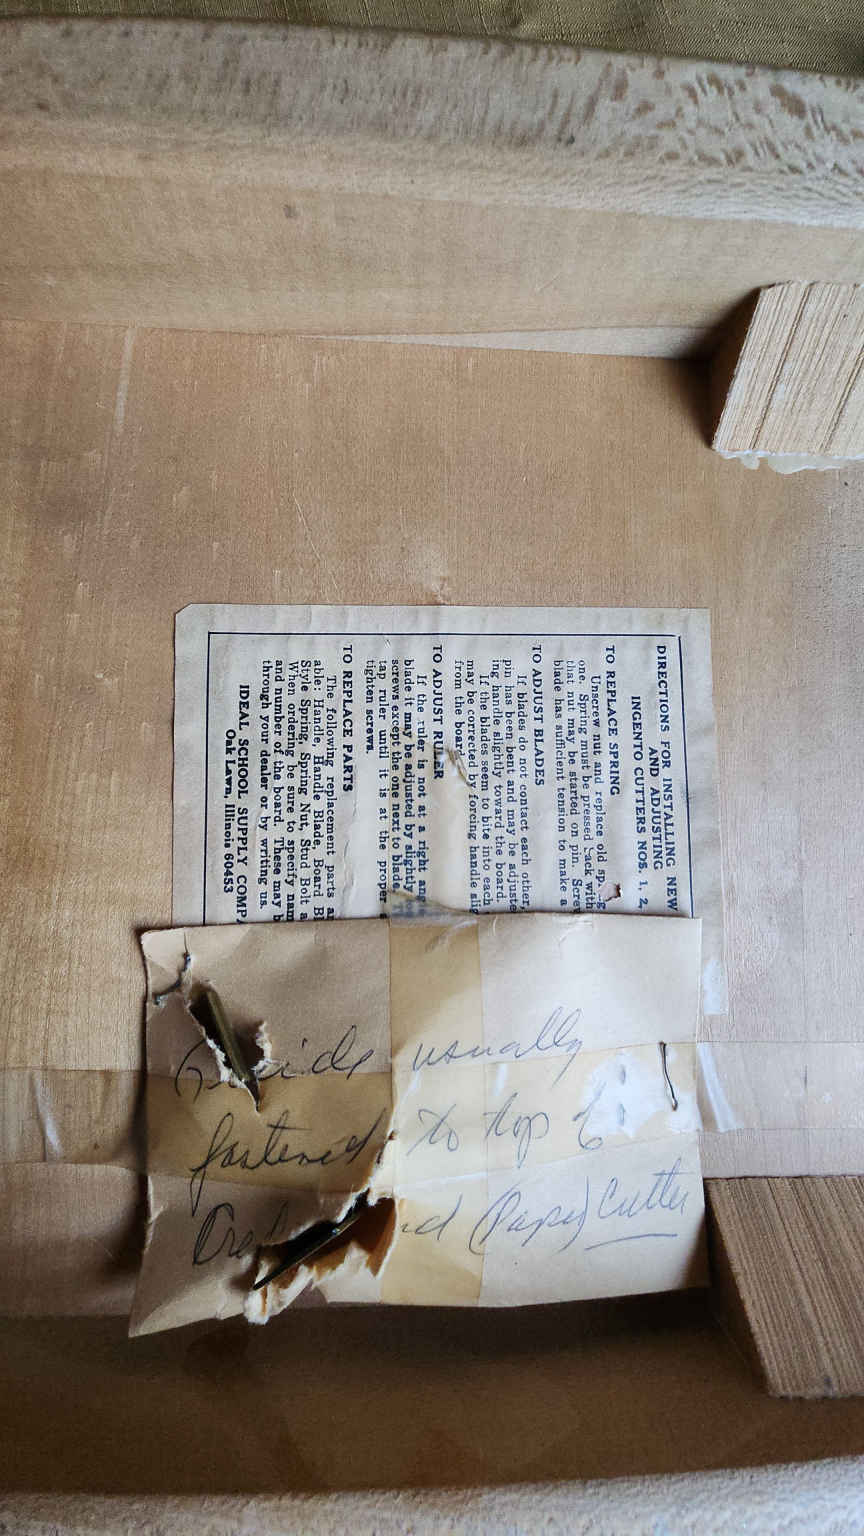 DIRECTIONS FOR INSTALLING NEW
AND ADJUSTING
INGENTO CUTTERS NOS. 1, 2,
TO REPLACE SPRING
Unscrew nut and replace old
one. Spring must be pressed back with
that nut may be started on pin. Screw
blade has sufficient tension to make a
TO ADJUST BLADES
If blades do not contact each other,
pin has been bent and may be adjuste
ing handle slightly toward the board.
If the blades seem to bite into each
may be corrected by forcing handle slig
from the board
TO ADJUST RULER
If the ruler is not at a right ang
blade it may be adjusted by slightly
screws except the one next to blade.
tap ruler until it is at the proper
tighten screws.
TO REPLACE PARTS
The following replacement parts a
able: Handle, Handle Blade, Board Bl
Style Spring, Spring Nut, Stud Bolt a
When ordering be sure to specify nam
and number of the board. These may b
through your dealer or by writing us.
IDEAL SCHOOL SUPPLY COMPA
Oak Lawn, Illinois 60453
usually
fastened to top of
(Paper) Cutter